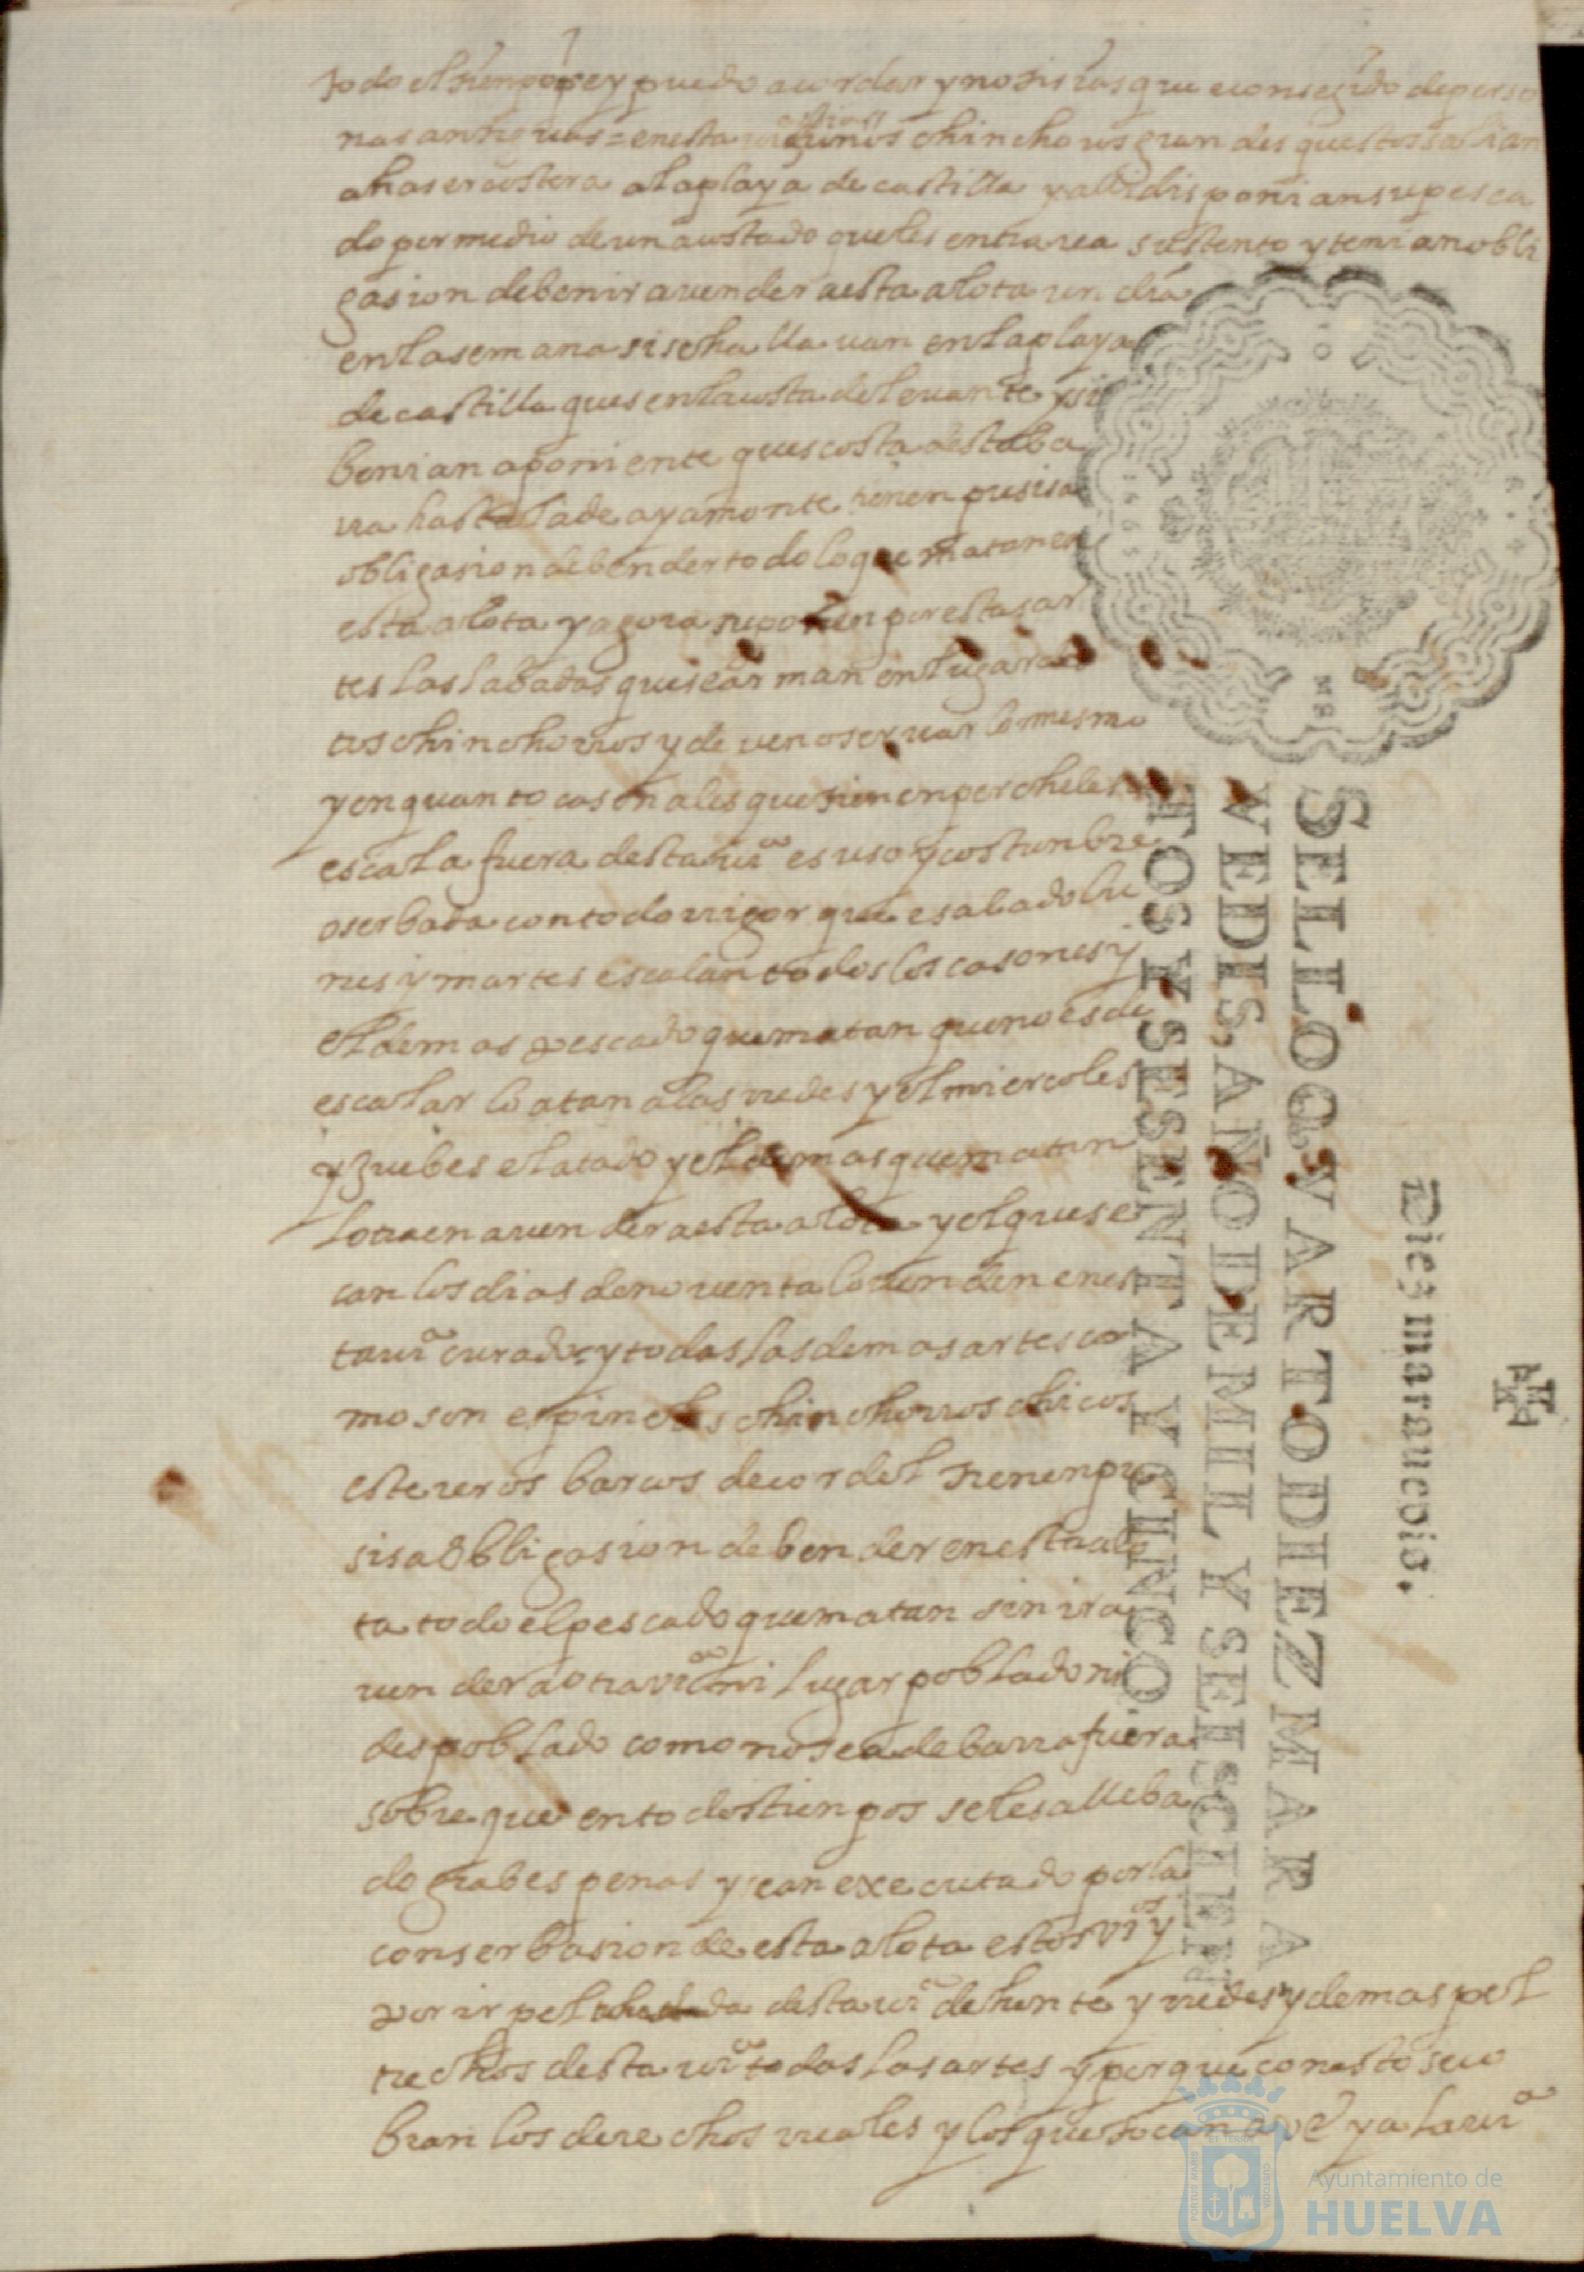 todo el tienpo q̃ey puedo acordar y notisias que e consegido de perso
nas antiguas = en esta uiª abia unos chinchorros grandes questos salian
a haser costera a la playa de castilla y alli disponian su pesca
do por medio de un acostado que les entraua sustento y tenian obli
gasion de benir a uender a esta alota un dia
en la semana si se hallauan en la playa
de castilla ques en la costa de leuante y si
benian a poniente ques costa desta ba
rra hasta la de ayamonte tienen presisa
obligasion de bender todo lo que mataren en
esta alota y agora suponen por estas ar
tes las labadas que se arman en lugar de
los chinchorros y deuen oseruar lo mesmo
y en quanto casonales que tienen percheles
escala fuera desta uiª es uso y costunbre
oserbada con todo rrigor que e sabado lu
nes y martes escalan todos los casones y
el demas pescado que matan que no es de
escalar lo atan a las rredes y el miercoles
y juebes el atado y el demas que matan
lo traen a uender a esta alota y el que se
can los dias de no uenta lo uenden en es
ta uiª curado y todas las demas artes co
mo son espineles chinchorros chicos
estereros barcos de cordel tienen pre
sisa obligasion de bender en esta alo
ta todo el pescado que matan sin ir a
uender a otra viª ni lugar poblado ni
despoblado como no sea de barra fuera
sobre que en todos tienpos se les a lleba
do grabes penas y se an executado por la
conserbasion de esta alota estos vºs y
por ir peltrechada desta uiª de lunte y rredes y demas pel
trechos desta uiª todas las artes y porque con esto se co
bran los derechos rreales y los que tocan a V E y a la uiª
SELLO QVARTO DIEZ MARA
VEDIS, AÑO DE MIL Y SEISCIEN
TOS Y SESENTA Y CINCO.
Diez marauedis.
Ayuntamiento de
HUELVA
PORTUS MARIS
CUSTODIA